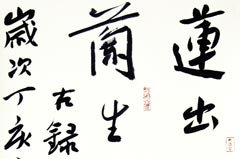 蓮出
蘭生
古録
歲次丁亥